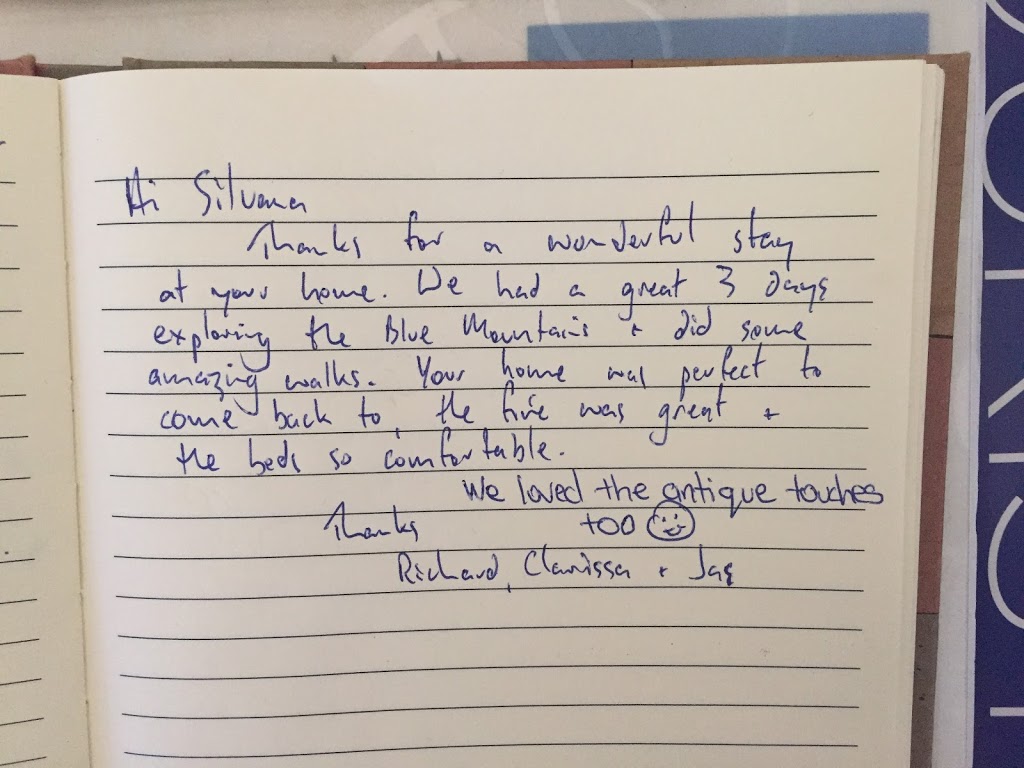 Hi Silvana
Thanks for a wonderful stay
at your home. We had a great 3 days
exploring the Blue Mountains + did some
amazing walks. Your home was perfect to
come back to, the fire was great +
the beds so comfortable.
We loved the antique touches
Thanks too
Richard, Clarissa +